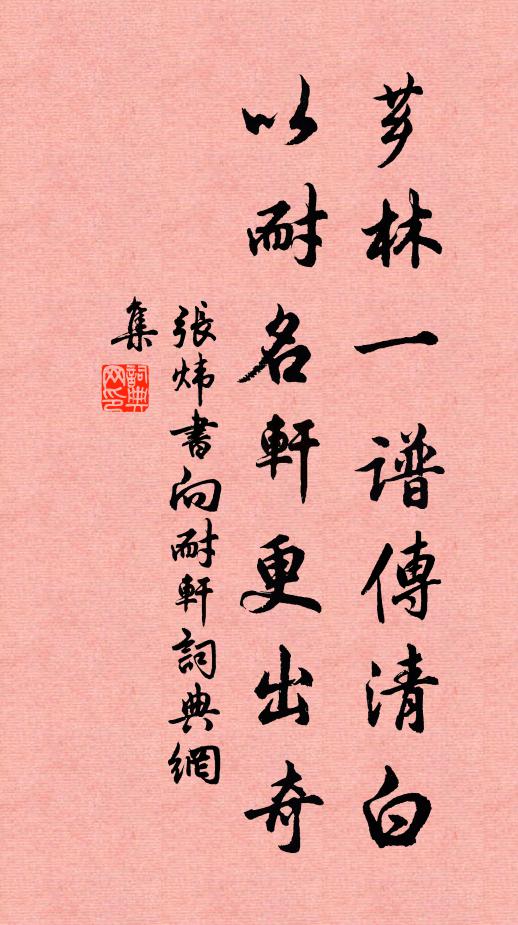 芗林一譜傳清白
以耐名軒更出奇
張炜書向耐軒詞典網
集
詞典
网印